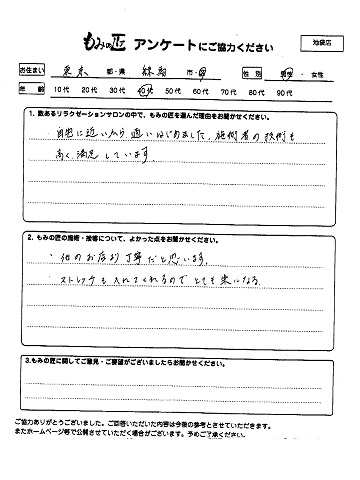 もみの匠 アンケートにご協力ください
池袋店
お住まい 東京 都・県 練馬 市・区 性別 男性・女性
年齢 10代 20代 30代 40代 50代 60代 70代 80代 90代
1. 数あるリラクゼーションサロンの中で、もみの匠を選んだ理由をお聞かせください。
・自宅に近いから通いはじめました。施術者の技術も
高く満足しています。
2. もみの匠の施術・接客について、よかった点をお聞かせください。
・他のお店より丁寧だと思います。
・ストレッチも入れてくれるのでとても楽になる。
3.もみの匠に関してご意見・ご要望がございましたらお聞かせください。
ご協力ありがとうございました。ご回答いただいた内容は今後の参考とさせていただきます。
またホームページ等で公開させていただく場合がございます。予めご了承ください。